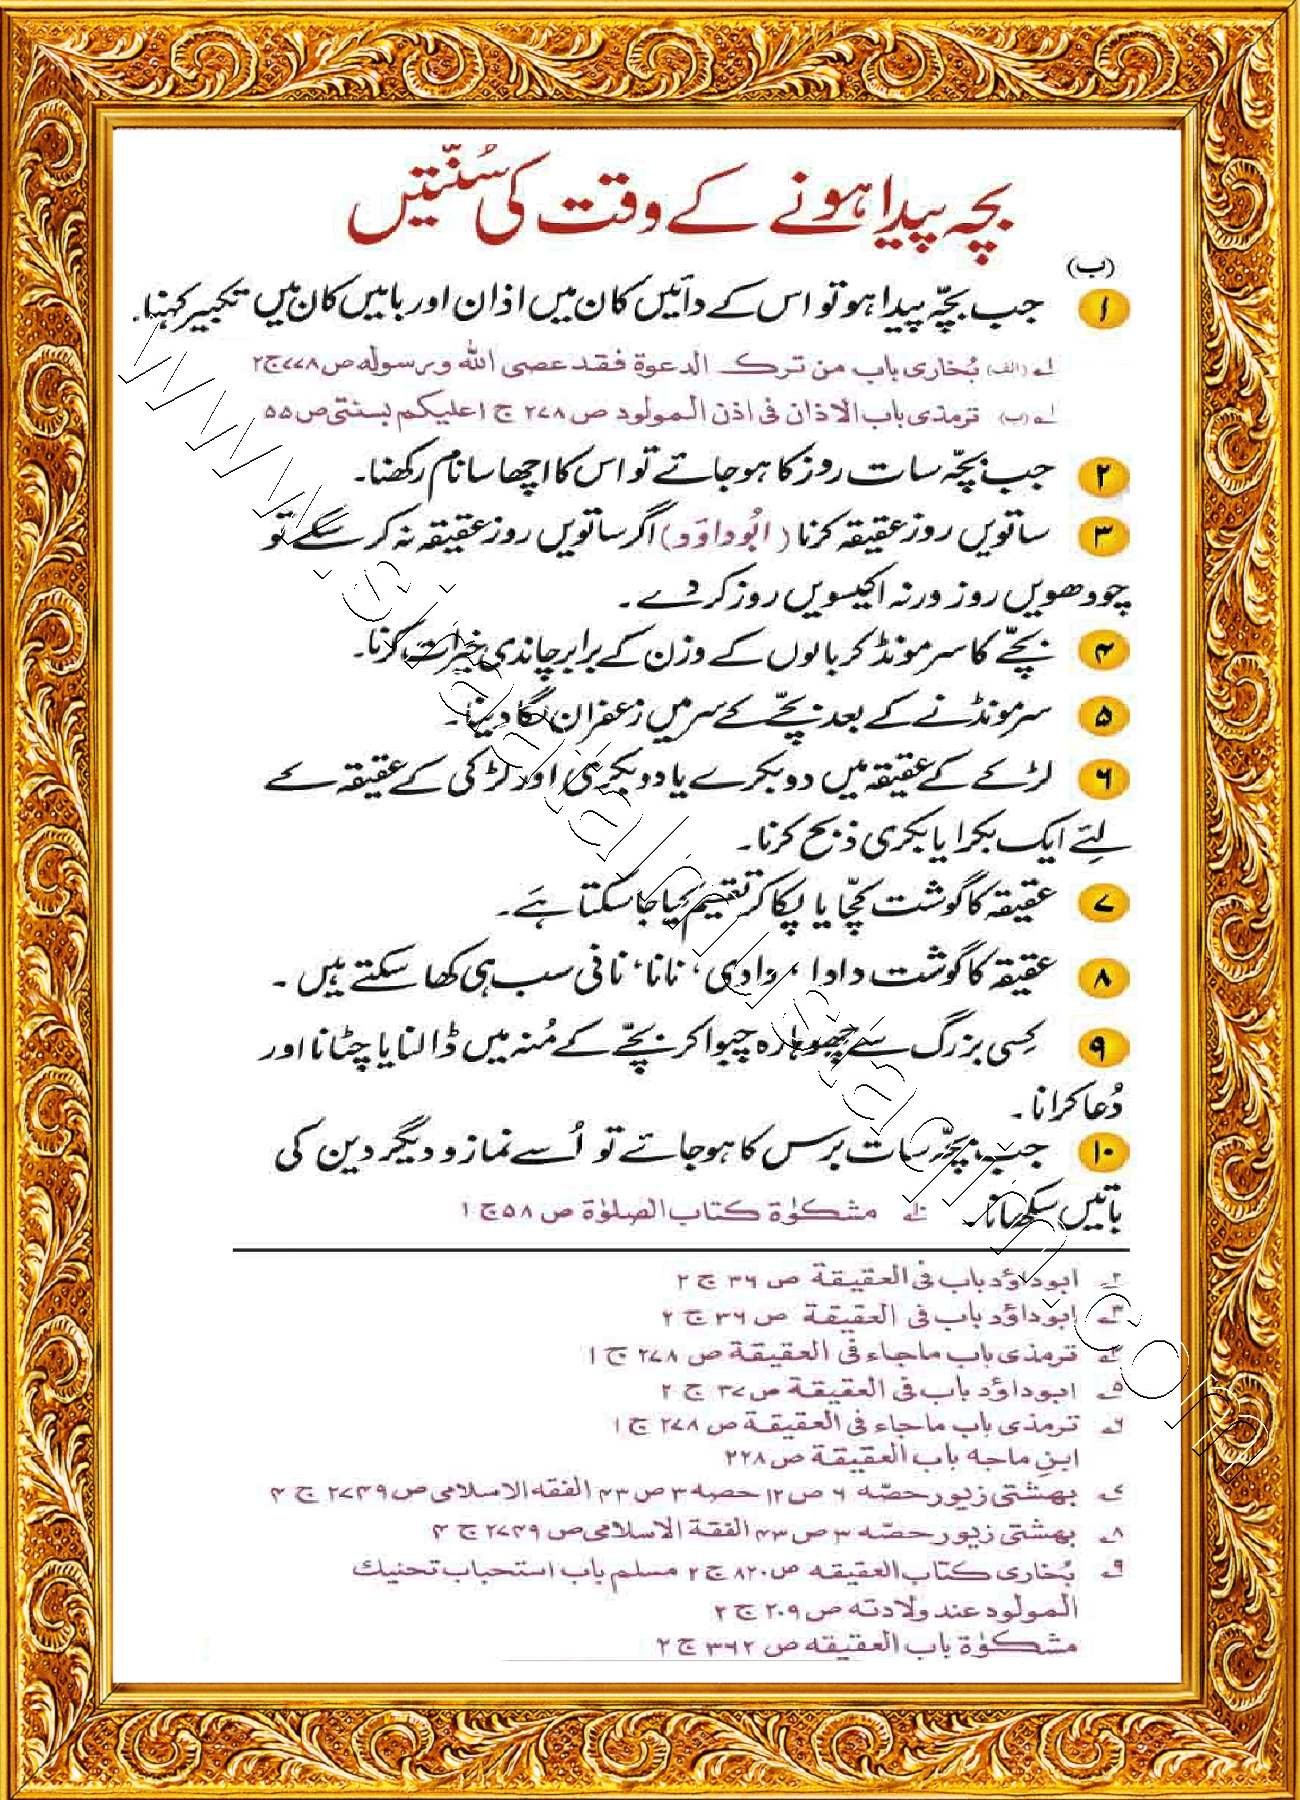 بچہ پیدا ہونے کے وقت کی سُنّتیں
(ب)
۱ جب بچّہ پیدا ہو تو اس کے دائیں کان میں اذان اور بائیں کان میں تکبیر کہنا۔
۱؎ (الف) بُخاری باب من ترک الدعوة فقد عصی اللہ ورسوله ص ۷۷۸ ج ۲
۱؎ (ب) ترمذی باب الاذان فی اذن المولود ص ۲۷۸ ج ۱ علیکم بسنتی ص ۵۵
۲ جب بچّہ سات روز کا ہو جائے تو اس کا اچھا سا نام رکھنا۔
۳ ساتویں روز عقیقہ کرنا (ابُوداوَد) اگر ساتویں روز عقیقہ نہ کر سکے تو
چودھویں روز ورنہ اکیسویں روز کر دے۔
۴ بچّے کا سر مونڈ کر بالوں کے وزن کے برابر چاندی خیرات کرنا۔
۵ سر مونڈنے کے بعد بچّے کے سر میں زعفران لگا دینا۔
۶ لڑکے کے عقیقہ میں دو بکرے یا دو بکری اور لڑکی کے عقیقہ کے
لئے ایک بکرا یا بکری ذبح کرنا۔
۷ عقیقہ کا گوشت کچّا یا پکا کر تقسیم کیا جا سکتا ہَے۔
۸ عقیقہ کا گوشت دادا، دادی، نانا، نانی سب ہی کھا سکتے ہیں۔
۹ کِسی بزرگ سے چھوہارہ چبوا کر بچّے کے مُنہ میں ڈالنا یا چٹانا اور
دُعا کرانا۔
۱۰ جب بچّہ سات برس کا ہو جائے تو اُسے نماز و دیگر دین کی
باتیں سکھانا۔ ۱۰؎ مشکوٰة کتاب الصلوٰة ص ۵۸ ج ۱
۲؎ ابوداؤد باب فی العقیقة ص ۳۶ ج ۲
۳؎ ابوداؤد باب فی العقیقة ص ۳۶ ج ۲
۴؎ ترمذی باب ماجاء فی العقیقة ص ۲۷۸ ج ۱
۵؎ ابوداؤد باب فی العقیقة ص ۳۷ ج ۲
۶؎ ترمذی باب ماجاء فی العقیقة ص ۲۷۸ ج ۱
ابنِ ماجه باب العقیقة ص ۲۲۸
۷؎ بهشتی زیور حصّه ۶ ص ۱۲ حصه ۳ ص ۴۳ الفقه الاسلامی ص ۲۷۴۹ ج ۴
۸؎ بهشتی زیور حصّه ۳ ص ۴۳ الفقة الاسلامی ص ۲۷۴۹ ج ۴
۹؎ بُخاری کتاب العقیقه ص ۸۲۰ ج ۲ مسلم باب استحباب تحنیك
المولود عند ولادته ص ۲۰۹ ج ۲
مشکوٰة باب العقیقه ص ۳۶۲ ج ۲
www.siratalmustaqim.com